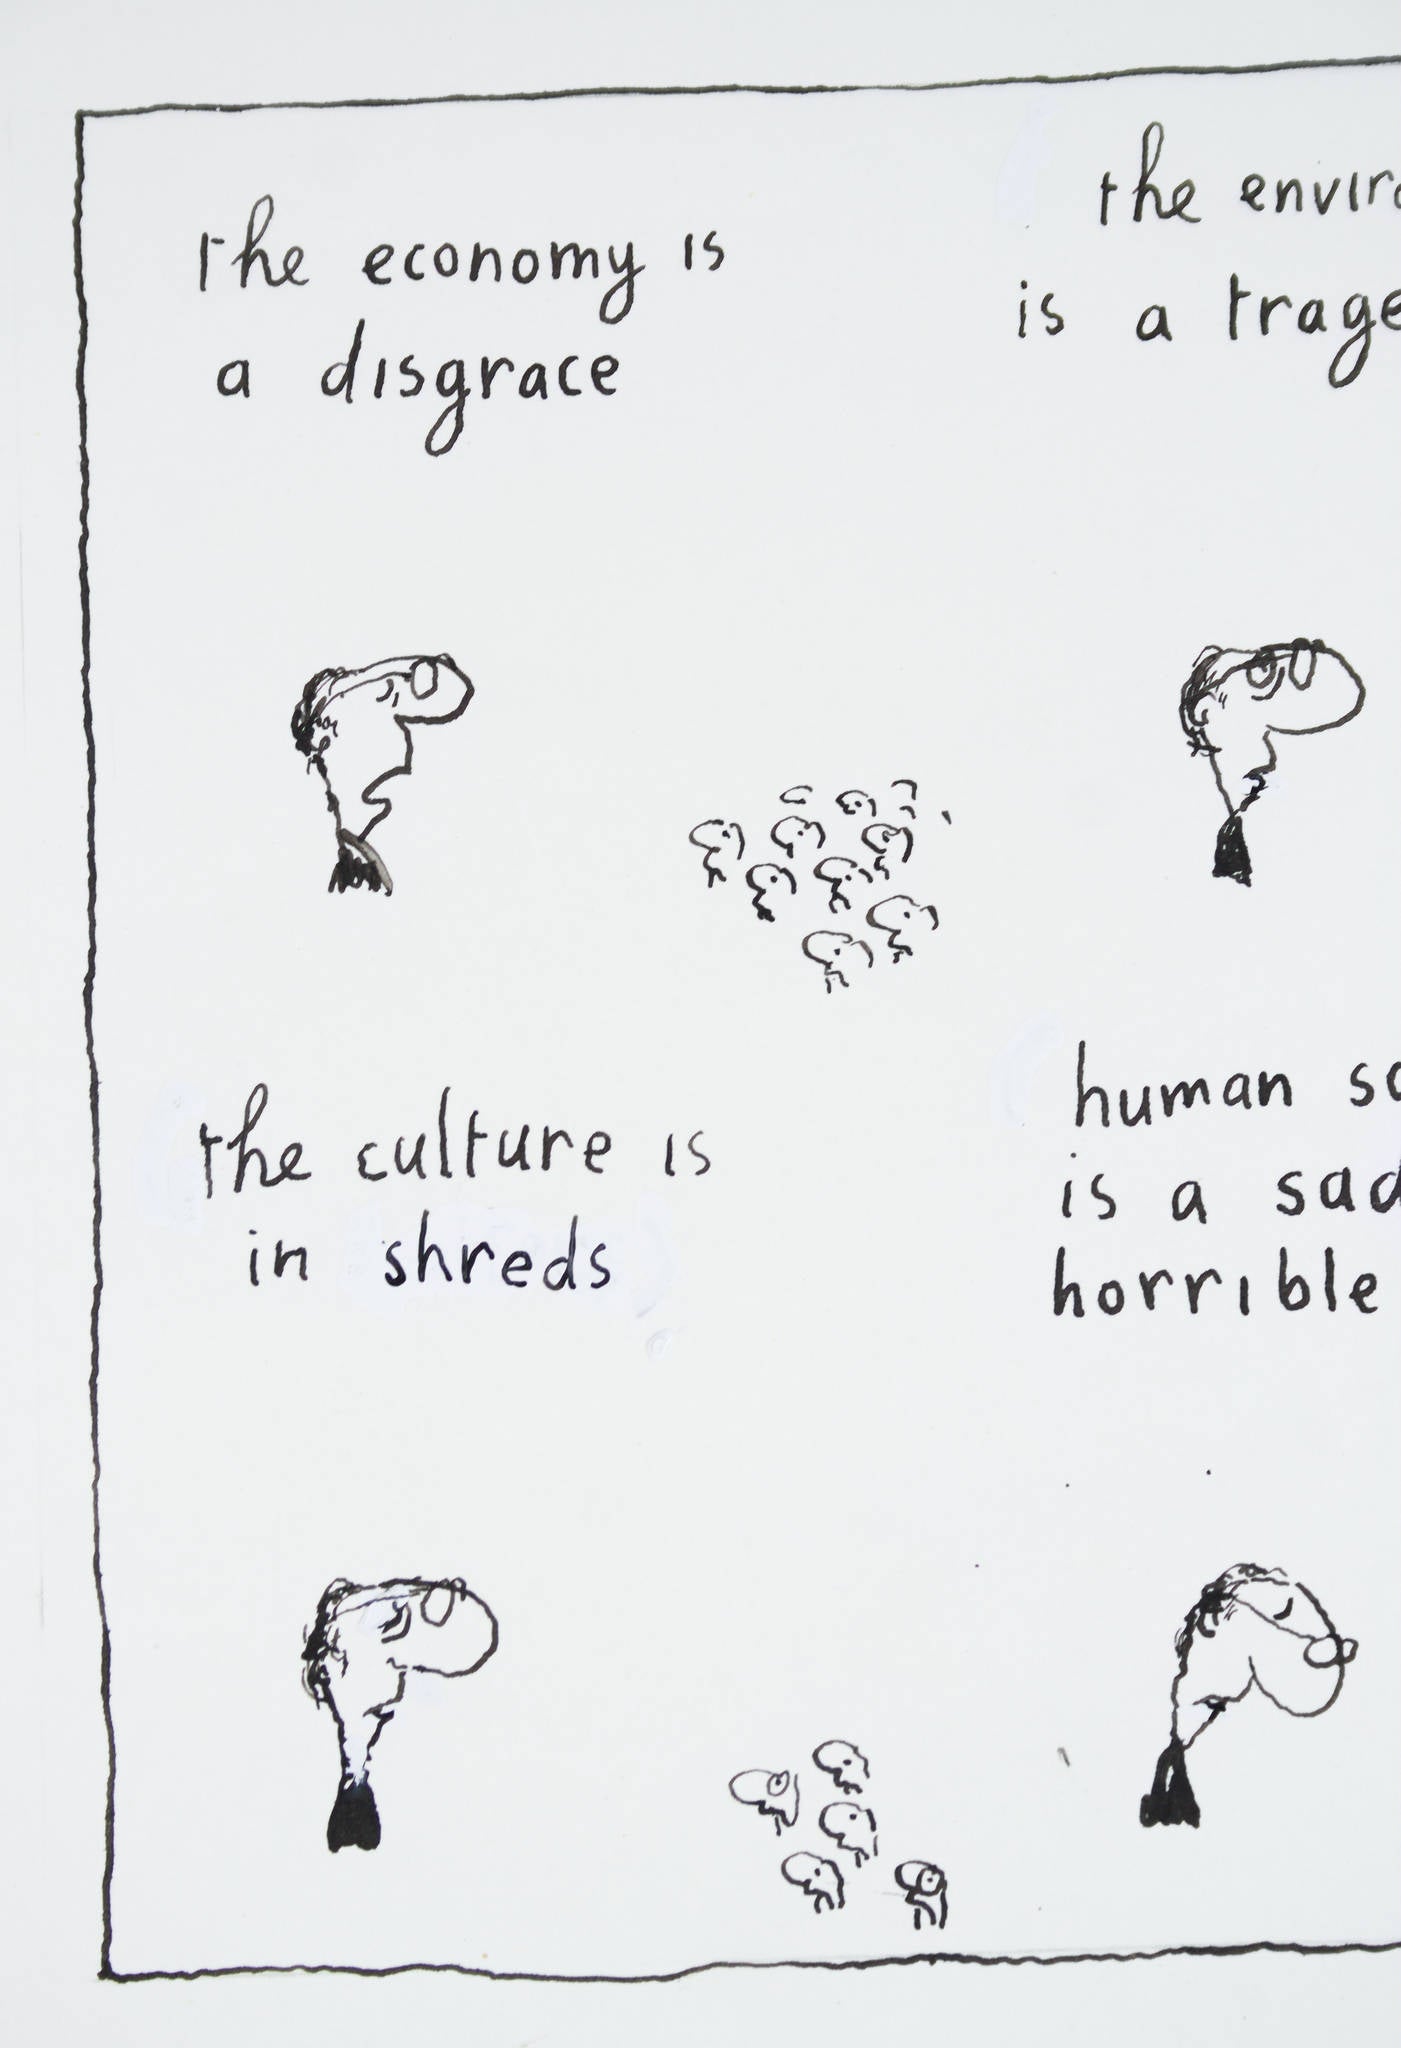 the economy is
a disgrace
the enviro
is a trage
the culture is
in shreds
human so
is a sad
horrible